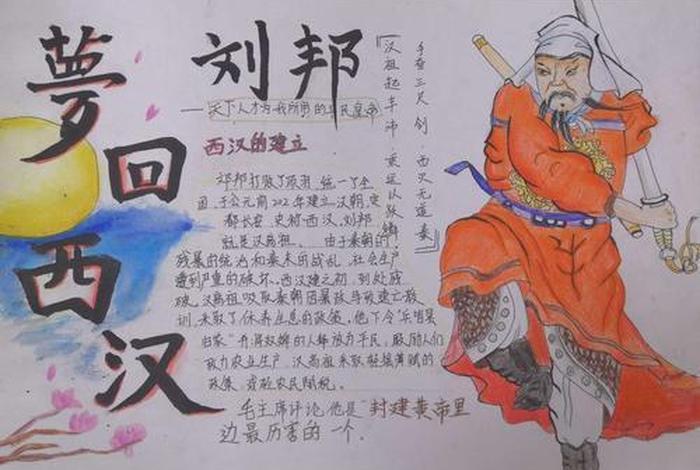 夢
回
西
汉
刘邦
——天下人才为我所用的平民皇帝
『汉祖起丰沛，乘运以跃鳞
手奋三尺剑，西灭无道秦』
西汉的建立
邓邦打败了项羽，统一了全
国，于公元前202年建立汉朝，定
都长安，史称西汉，刘邦
就是汉高祖。由于秦朝的
残暴的统治和秦末的战乱，社会生产
遭到严重的破坏。西汉建之初，到处残
破，汉高祖吸取秦朝因暴政导致速亡教
训，采取了休养生息的政策，他下令"兵皆罢
归家"，并将奴婢的人释放为平民，鼓励人们
致力农业生产，汉高祖采取轻徭薄赋的
政策，减轻农民赋税。
毛主席评论他是"封建黄帝里
边最厉害的一个.